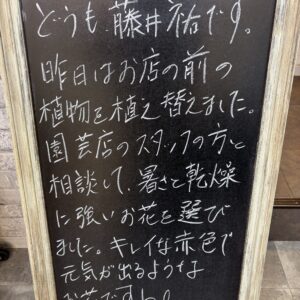 どうも、藤井祐です。
昨日はお店の前の
植物を植え替えました。
園芸店のスタッフの方と
相談して、暑さと乾燥
に強いお花を選び
ました。キレイな赤色で
元気が出るような
お花ですね。